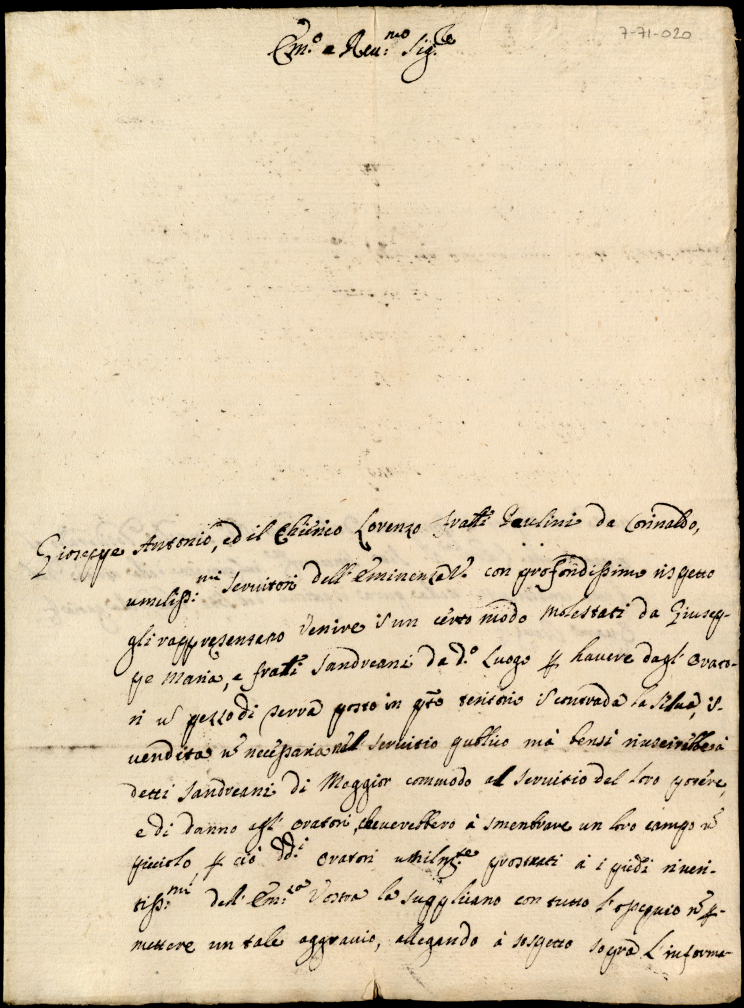 7-71-020
Em.o e Reu.mo Sig.re
Gioseppe Antonio, ed il Chierico Lorenzo fratti Paulini da Corinaldo,
umiliss:mi Seruitori dell'Eminenza V. con profondissimo rispetto
gli rappresentano Venire i un certo modo molestati da Giusep-
pe Maria, e fratti Sandreani da d.o Luogo p hauere dagl'Orato-
ri u pezzo di terra posto in qto teritorio i contrada la Selua, i
uendita n necessaria al seruitio publico mà bensi riuscirebbe à
detti Sandreani di Maggior commodo al seruitio del loro podere,
e di danno agl'Oratori, che uerebbero à smembrare un loro campo n
picciolo, p ciò dd.i Oratori umilm.te prostrati à i piedi riueri-
tiss:mi dell'Em.za Vostra la suppliccano con tutto l'ossequio n p-
mettere un tale aggrauio, allegando à sospetto sopra L'informa-